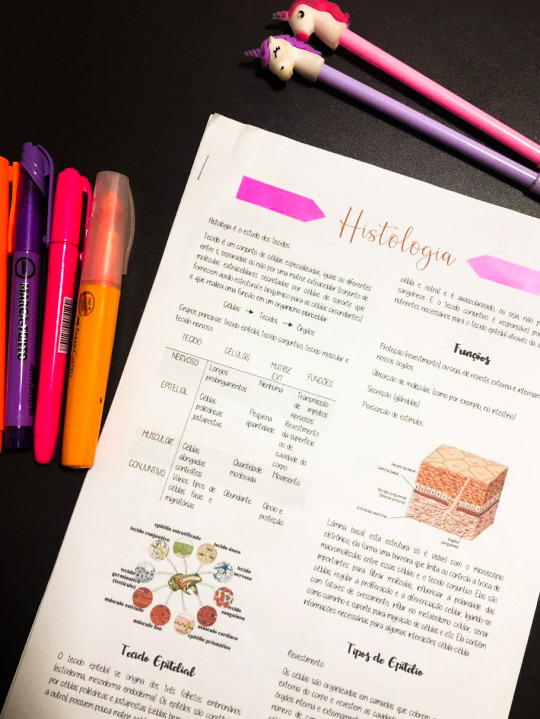 Histologia
Histologia é o estudo dos tecidos.
Tecido é um conjunto de células especializadas, iguais ou diferentes
entre si, separadas ou não por uma matriz extracelular (conjunto de
moléculas extracelulares secretadas por células de suporte que
fornecem auxílio estrutural e bioquímico para as células circundantes)
e que realiza uma função em um organismo pluricelular.
Células → Tecidos → Órgãos
Grupos principais: tecido epitelial, tecido conjuntivo, tecido muscular e
tecido nervoso.
TECIDO CÉLULAS MATRIZ EXT. FUNÇÕES
NERVOSO Longos prolongamentos Nenhuma Transmissão de impulsos nervosos
EPITELIAL Células poliédricas justapostas Pequena quantidade Revestimento da superfície ou de cavidade do corpo
MUSCULAR Células alongadas contráteis Quantidade moderada Movimento
CONJUNTIVO Vários tipos de células fixas e migratórias Abundante Apoio e proteção
epitélio estratificado
tecido conjuntivo
tecido ósseo
tecido nervoso
tecido germinativo
tecido sanguíneo
músculo estriado
músculo cardíaco
músculo liso
epitélio prismático
Tecido Epitelial
O tecido epitelial se origina dos três folhetos embrionários
(ectoderma, mesoderma, endoderma). Os epitélios são
por células poliédricas e justapostas (células
a outra), possuem pouca matriz
célula e outra) e é avascularizado, ou seja, não
sanguíneos. E o tecido conjuntivo é responsável por
nutrientes necessários para o tecido epitelial através da
Funções
Proteção (revestimento), ou seja, ele reveste externa e
nossos órgãos
Absorção de moléculas (como por exemplo, no intestino)
Secreção (glândulas)
Percepção de estímulos
Lâmina basal: esta estrutura só é visível com o microscópio
eletrônico, ela forma uma barreira que limita ou controla a troca de
macromoléculas entre essas células e o tecido conjuntivo. Elas são
importantes para filtrar moléculas, influenciar a polaridade das
células, regular a proliferação e a diferenciação celular, ligando-se
com fatores de crescimento, influir no metabolismo celular, servir
como caminho e suporte para migração de células e etc. Ela contém
informações necessárias para algumas interações célula-célula.
Tipos de Epitélio
Revestimento
Os células são organizadas em camadas que cobrem
externa do corpo e revestem as cavidades
órgãos interna e externamente
número de